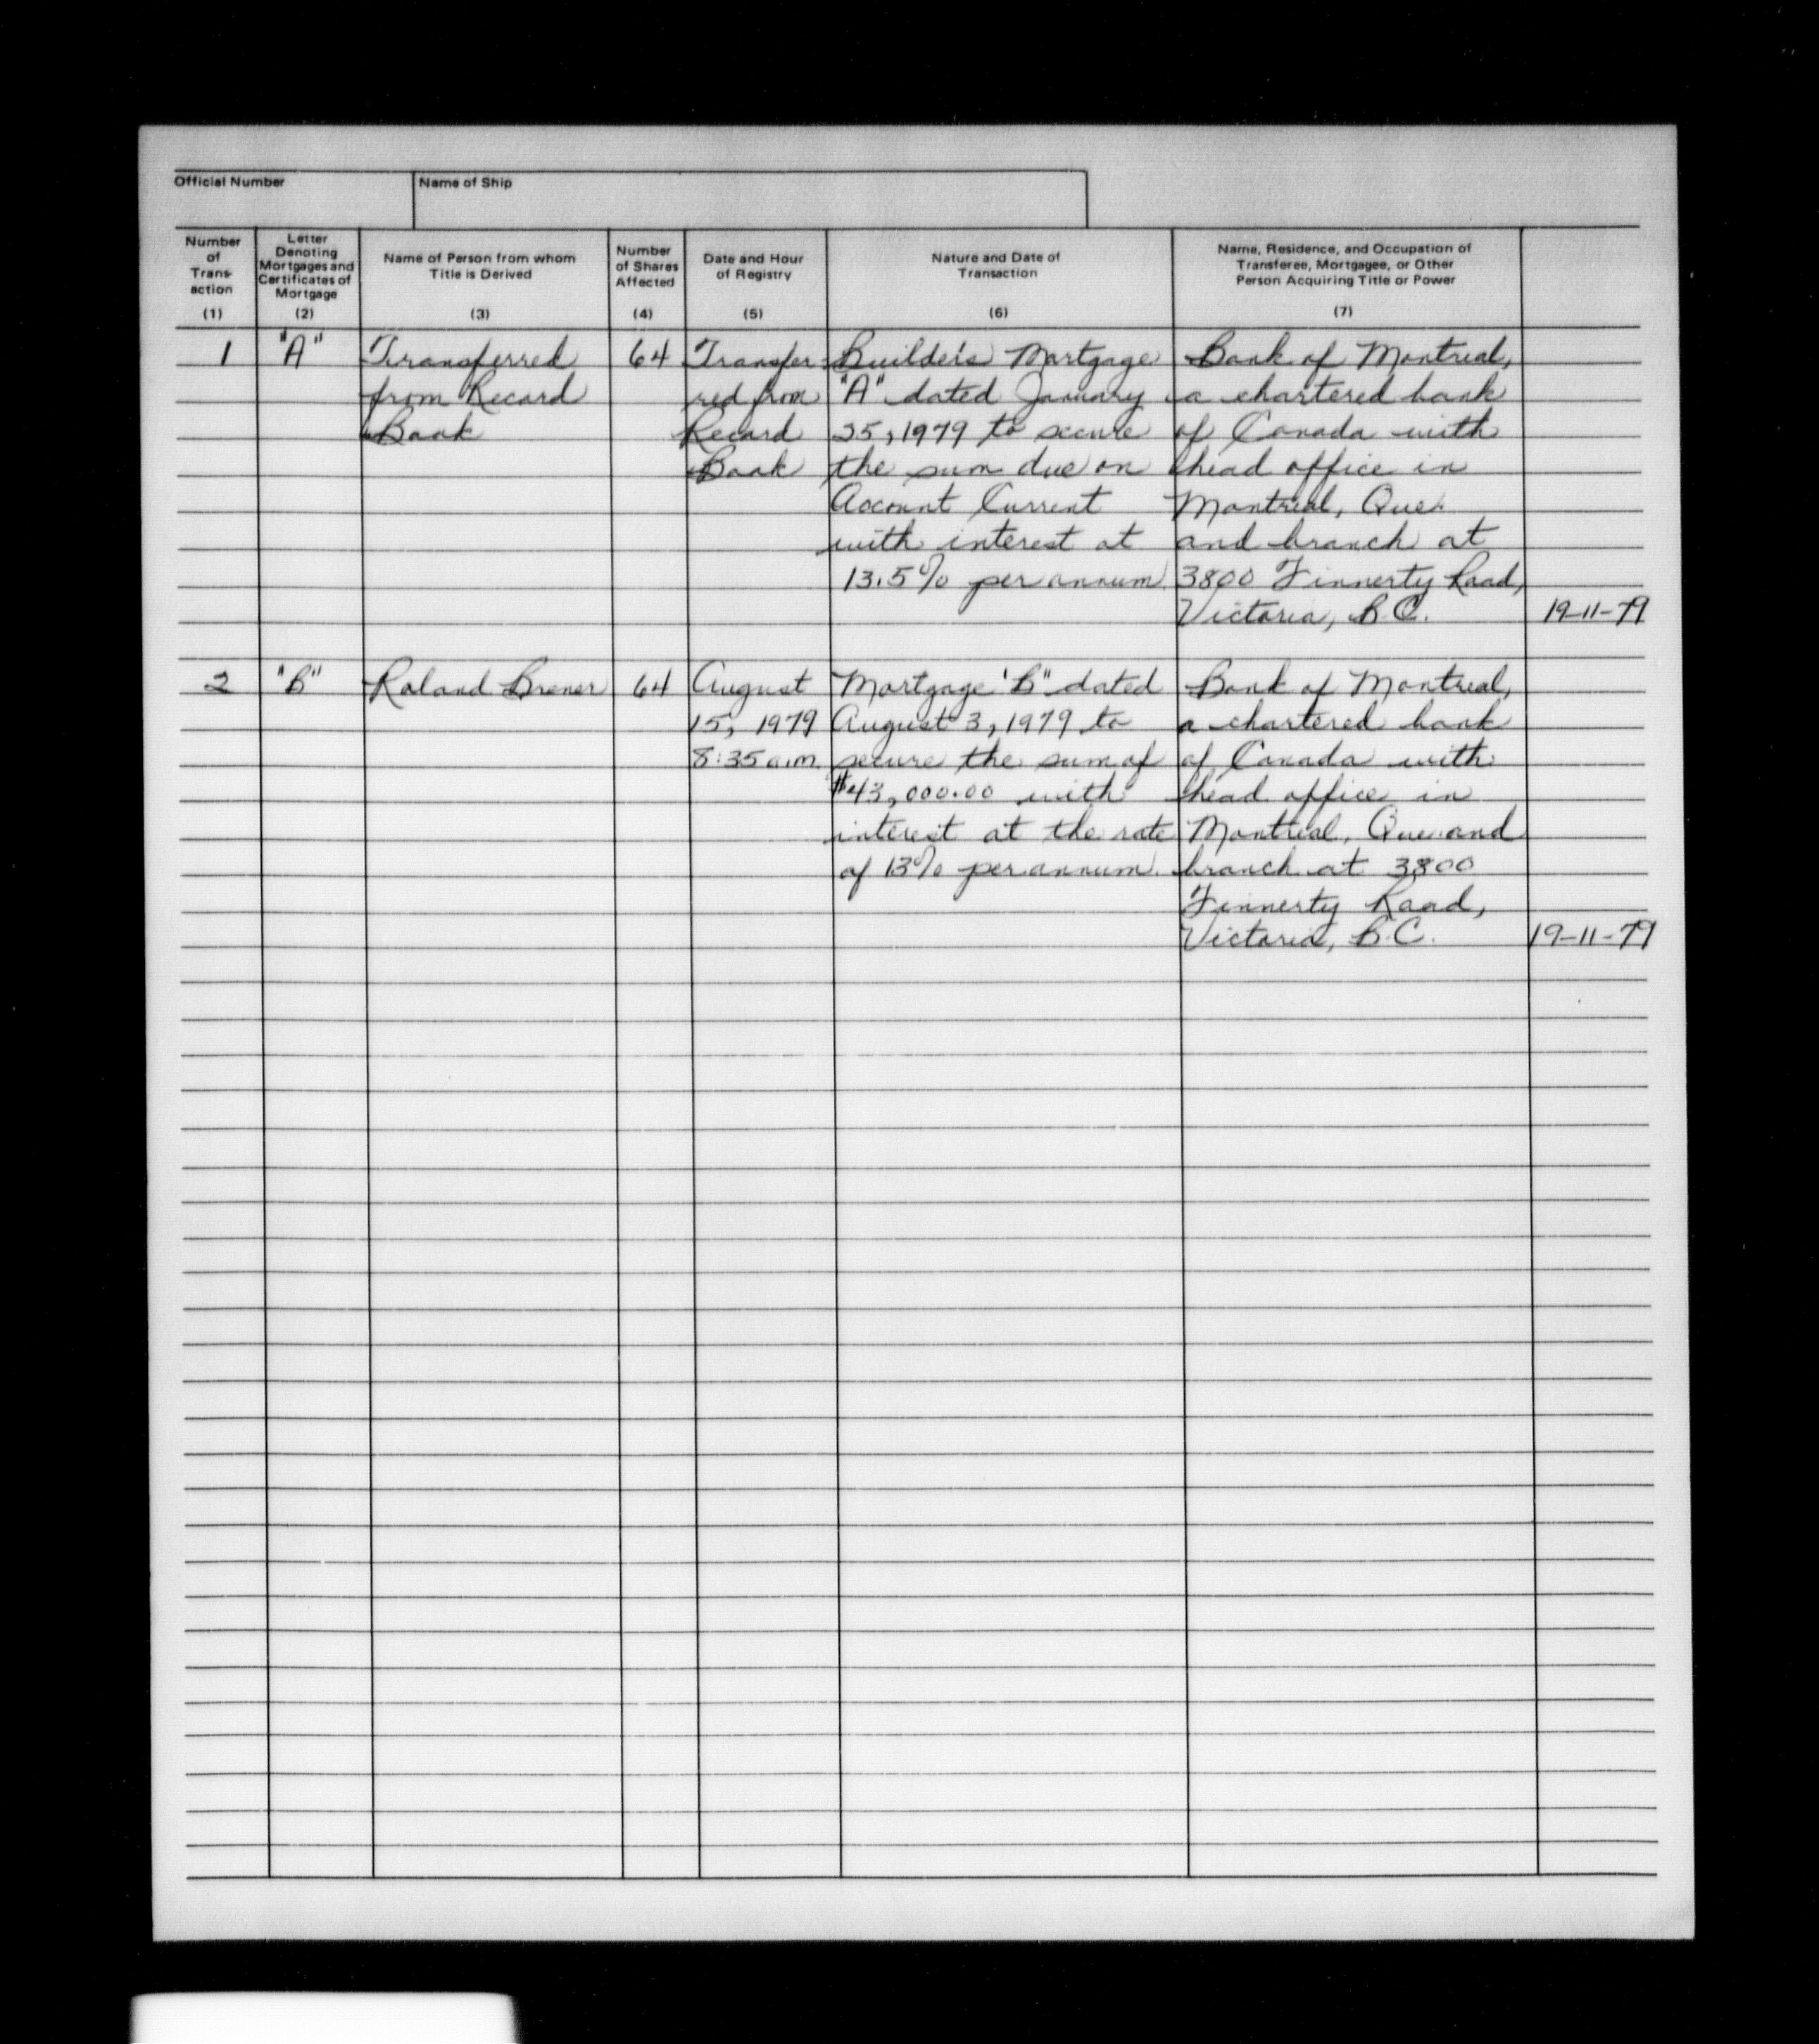 Official Number
Name of Ship
Number of Trans- action (1)
Letter Denoting Mortgages and Certificates of Mortgage (2)
Name of Person from whom Title is Derived (3)
Number of Shares Affected (4)
Date and Hour of Registry (5)
Nature and Date of Transaction (6)
Name, Residence, and Occupation of Transferee, Mortgagee, or Other Person Acquiring Title or Power (7)
1 "A" Transferred 64 Transfer- Builder's Mortgage Bank of Montreal,
from Record red from "A" dated January a chartered bank
Book Record 25, 1979 to secure of Canada with
Book the sum due on head office in
Account Current Montreal, Que.
with interest at and branch at
13.5% per annum. 3800 Finnerty Road,
Victoria, B.C. 19-11-79
2 "B" Roland Brener 64 August Mortgage "B" dated Bank of Montreal,
15, 1979 August 3, 1979 to a chartered bank
8:35 a.m. secure the sum of of Canada with
$43,000.00 with head office in
interest at the rate Montreal, Que. and
of 13% per annum. branch at 3800
Finnerty Road,
Victoria, B.C. 19-11-79